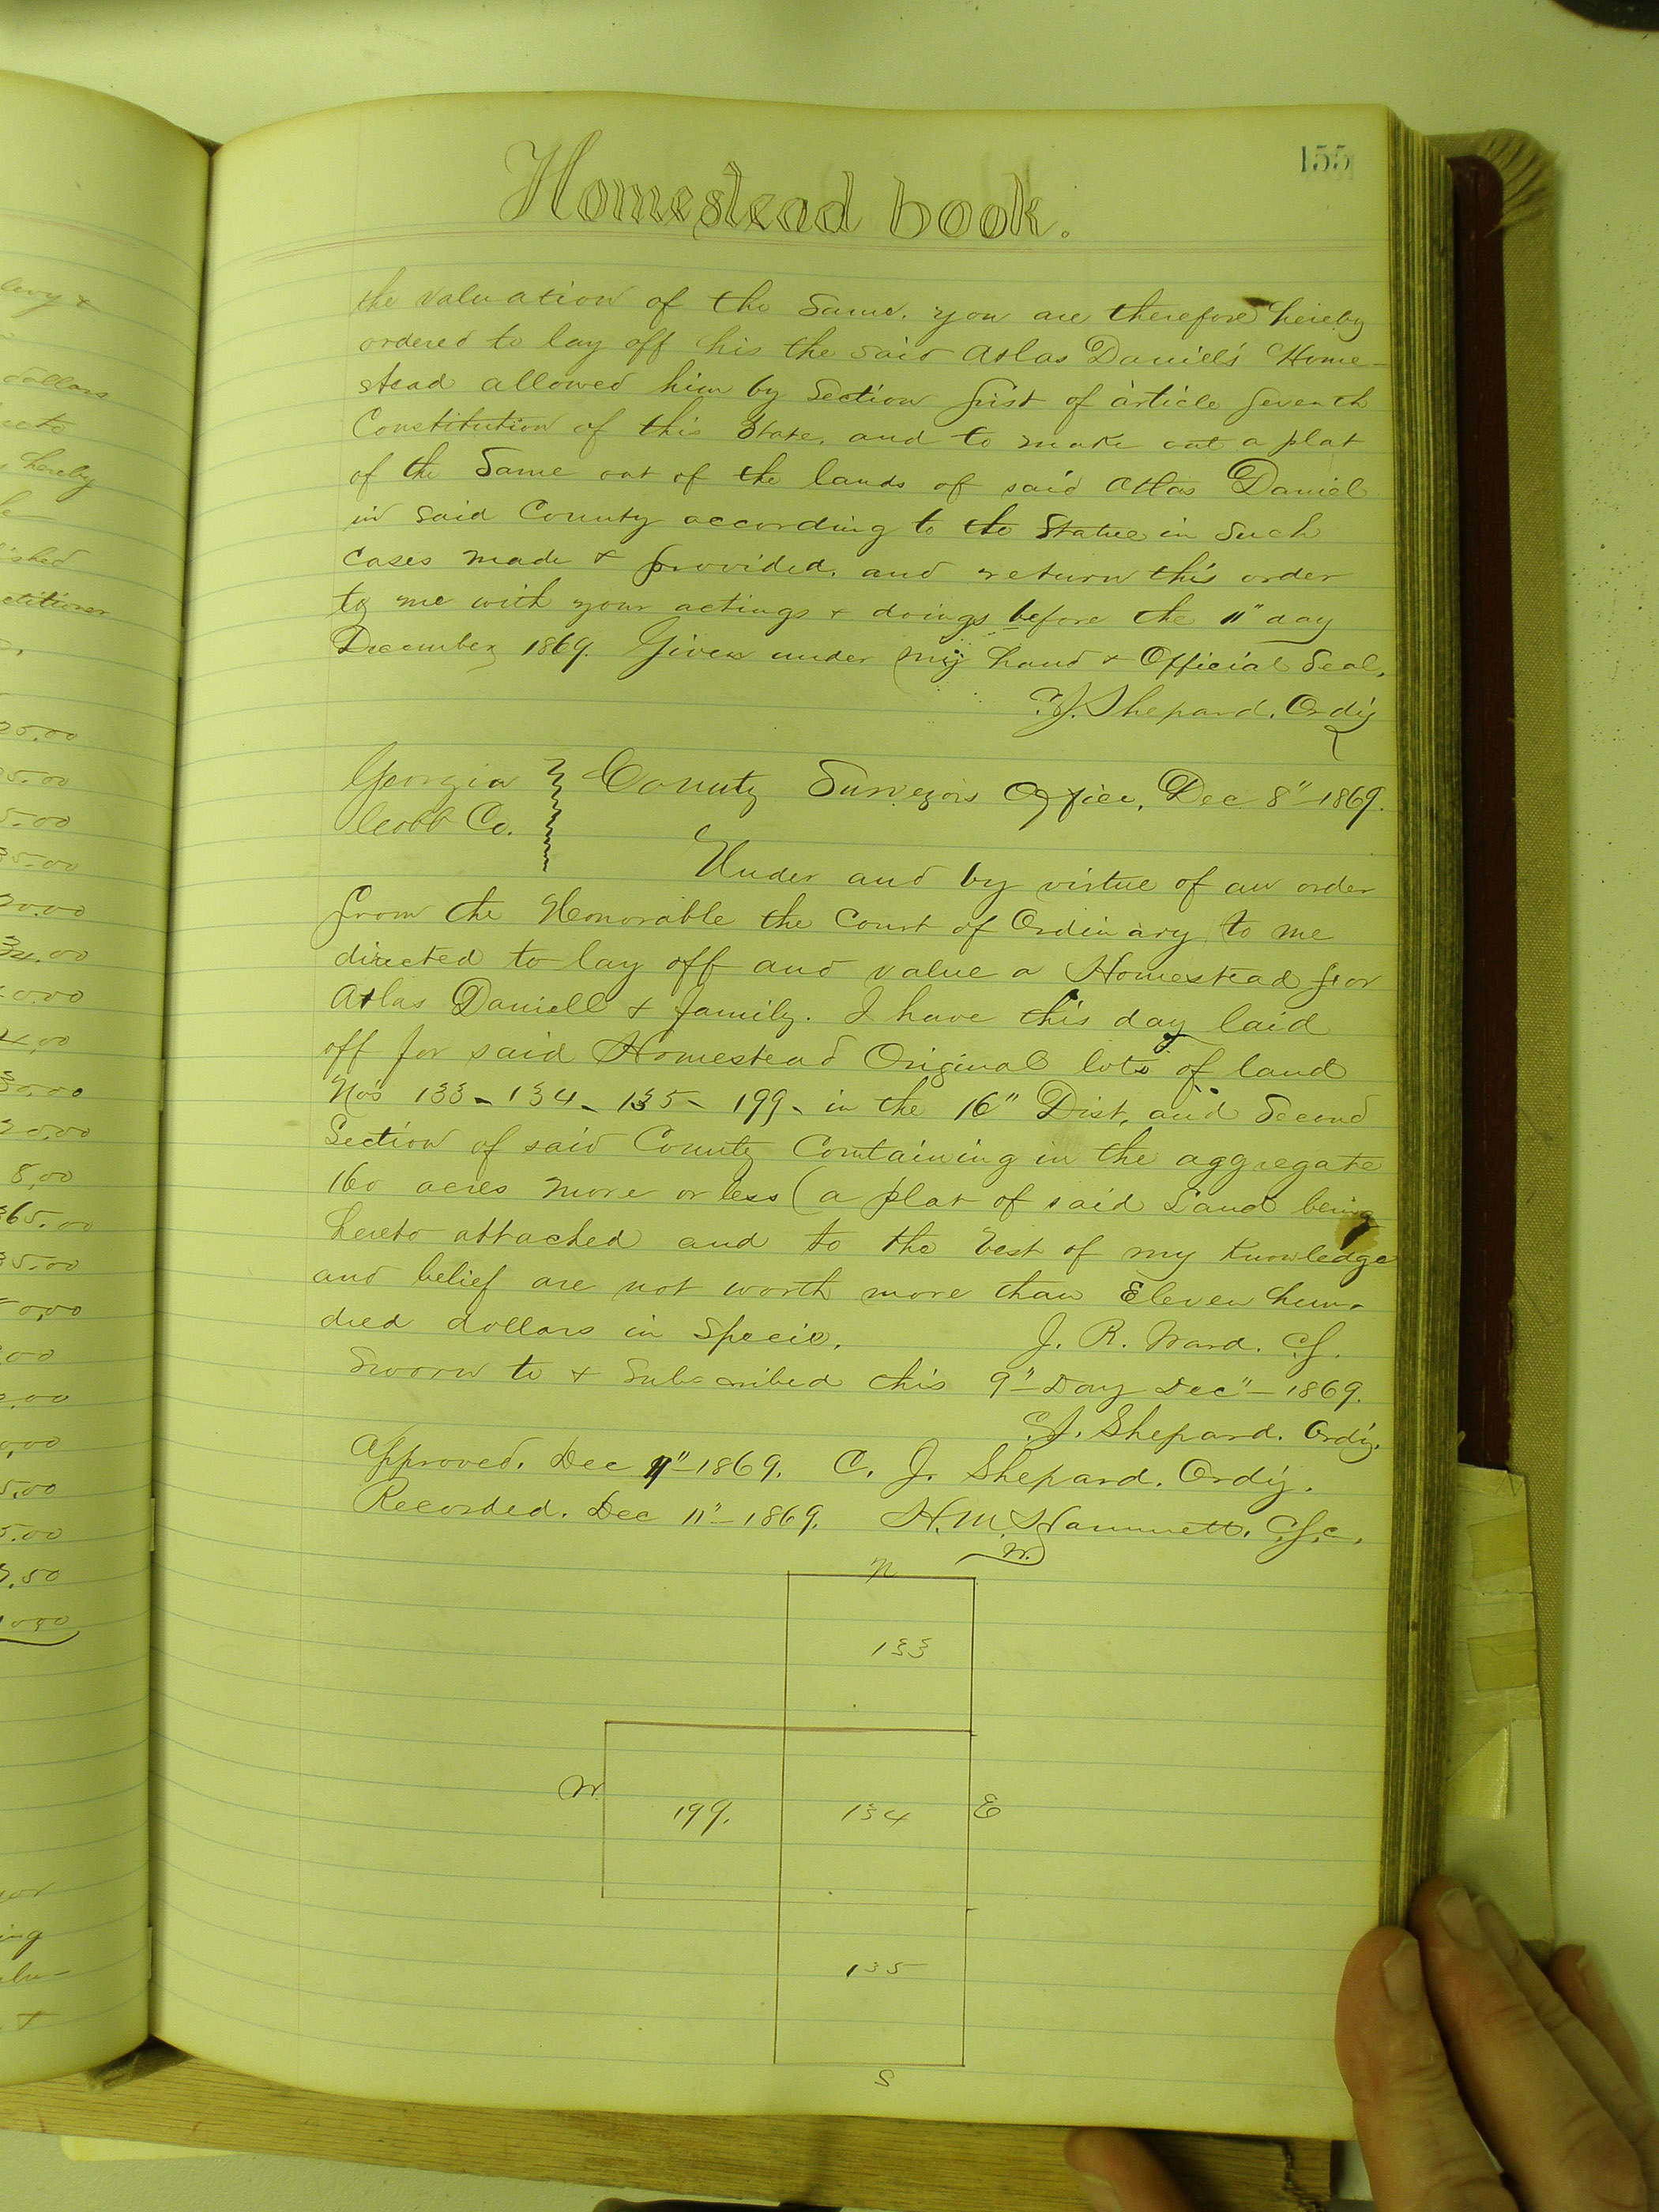 155
Homestead book.
the valuation of the Same. you are therefore hereby
ordered to lay off his the said Atlas Daniel's Home-
stead allowed him by Section first of article Seventh
Constitution of this State, and to make out a plat
of the Same out of the lands of said Atlas Daniel
in said County according to the Statue in Such
Cases made & provided. and return this order
to me with your actings & doings before the 11" day
December 1869. Given under my hand & Official Seal.
C.J. Shepard. Ordy
Georgia County Surveyors Office, Dec 8" 1869.
Cobb Co.
Under and by virtue of an order
from the Honorable the Court of Ordinary to me
directed to lay off and value a Homestead for
Atlas Daniell & family. I have this day laid
off for said Homestead Original lots of land
No's 133 - 134 - 135 - 199 - in the 16" Dist, and Second
Section of said County Containing in the aggregate
160 acres more or less (a plat of said Land being
hereto attached and to the best of my knowledge
and belief are not worth more than Eleven hun-
dred dollars in Specie. J. R. Ward. C.S.
Sworn to & Subscribed this 9" Day Dec" - 1869.
C.J. Shepard. Ordy.
Approved. Dec 11" 1869. C. J. Shepard. Ordy.
Recorded. Dec 11" - 1869. H. M. Hammett. C.S.C.
N
133
W
199.
134
E
135
S
levy &
dollars
hereby
ished
etitioner
25.00
5.00
5.00
35.00
00.00
34.00
0.00
4.00
30.00
20.00
8.00
365.00
35.00
0.00
.00
.00
0.00
5.00
5.00
.50
ing